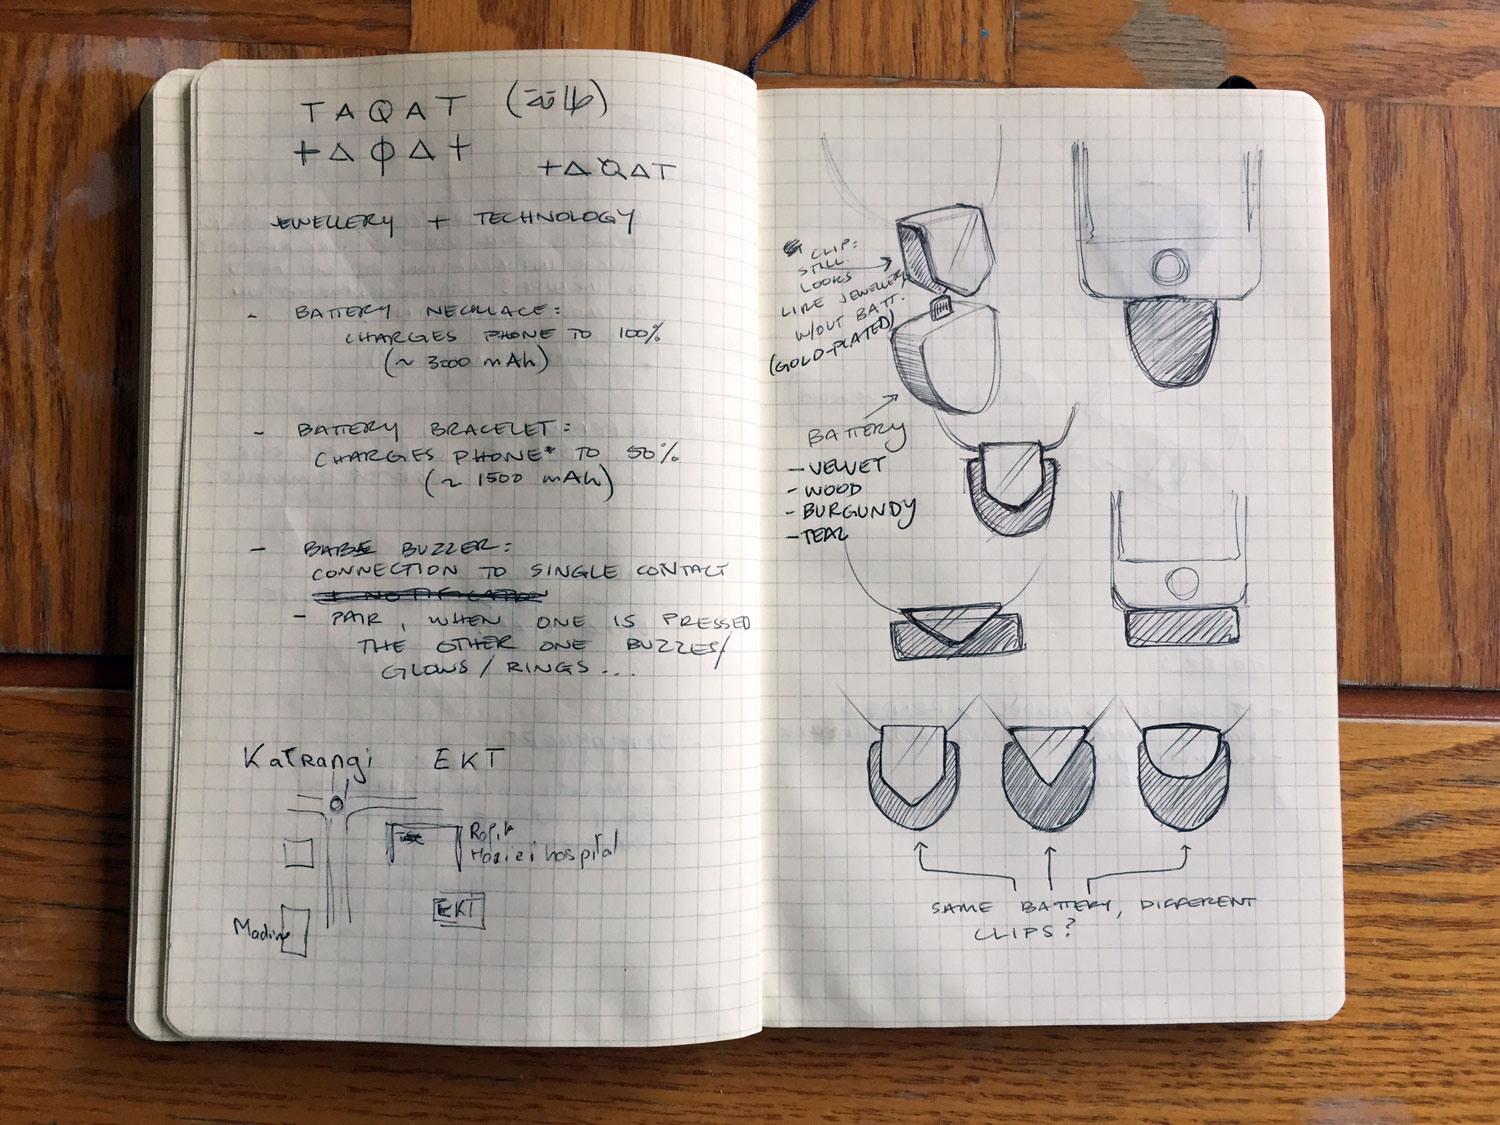 TAQAT (طاقة)
+ΔΦΔ+
+ΔQΔT
JEWELLERY + TECHNOLOGY
- BATTERY NECKLACE:
CHARGES PHONE TO 100%
(~ 3000 mAh)
- BATTERY BRACELET:
CHARGES PHONE* TO 50%
(~ 1500 mAh)
- BABE BUZZER:
CONNECTION TO SINGLE CONTACT
+ NOTIFICATION
- PAIR, WHEN ONE IS PRESSED
THE OTHER ONE BUZZES/
GLOWS/RINGS...
Katrangi EKT
hospital
EKT
CLIP:
STILL
LOOKS
LIKE JEWELLERY
W/OUT BATT.
(GOLD-PLATED)
BATTERY
- VELVET
- WOOD
- BURGUNDY
- TEAL
SAME BATTERY, DIFFERENT
CLIPS?